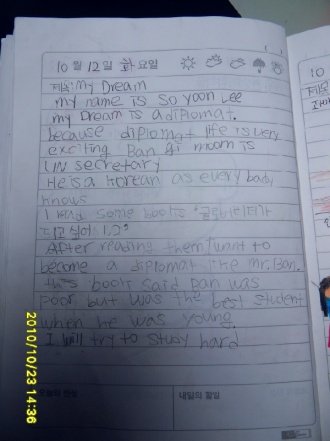 10월 12일 화요일
제목: My Dream
my name is so yoon Lee
my Dream is a diplomat.
because diplomat life is very
exciting Ban gi moom is
UN secretary
He is a Korean as every body
knows
I read some books "글로벌 리더가
되고 싶어 1, 2"
After reading them I want to
become a diplomat like mr. Ban.
this book said Ban was
poor but was the best student
when he was young.
I will try to study hard
내일의 할일
2010/10/23 14:36